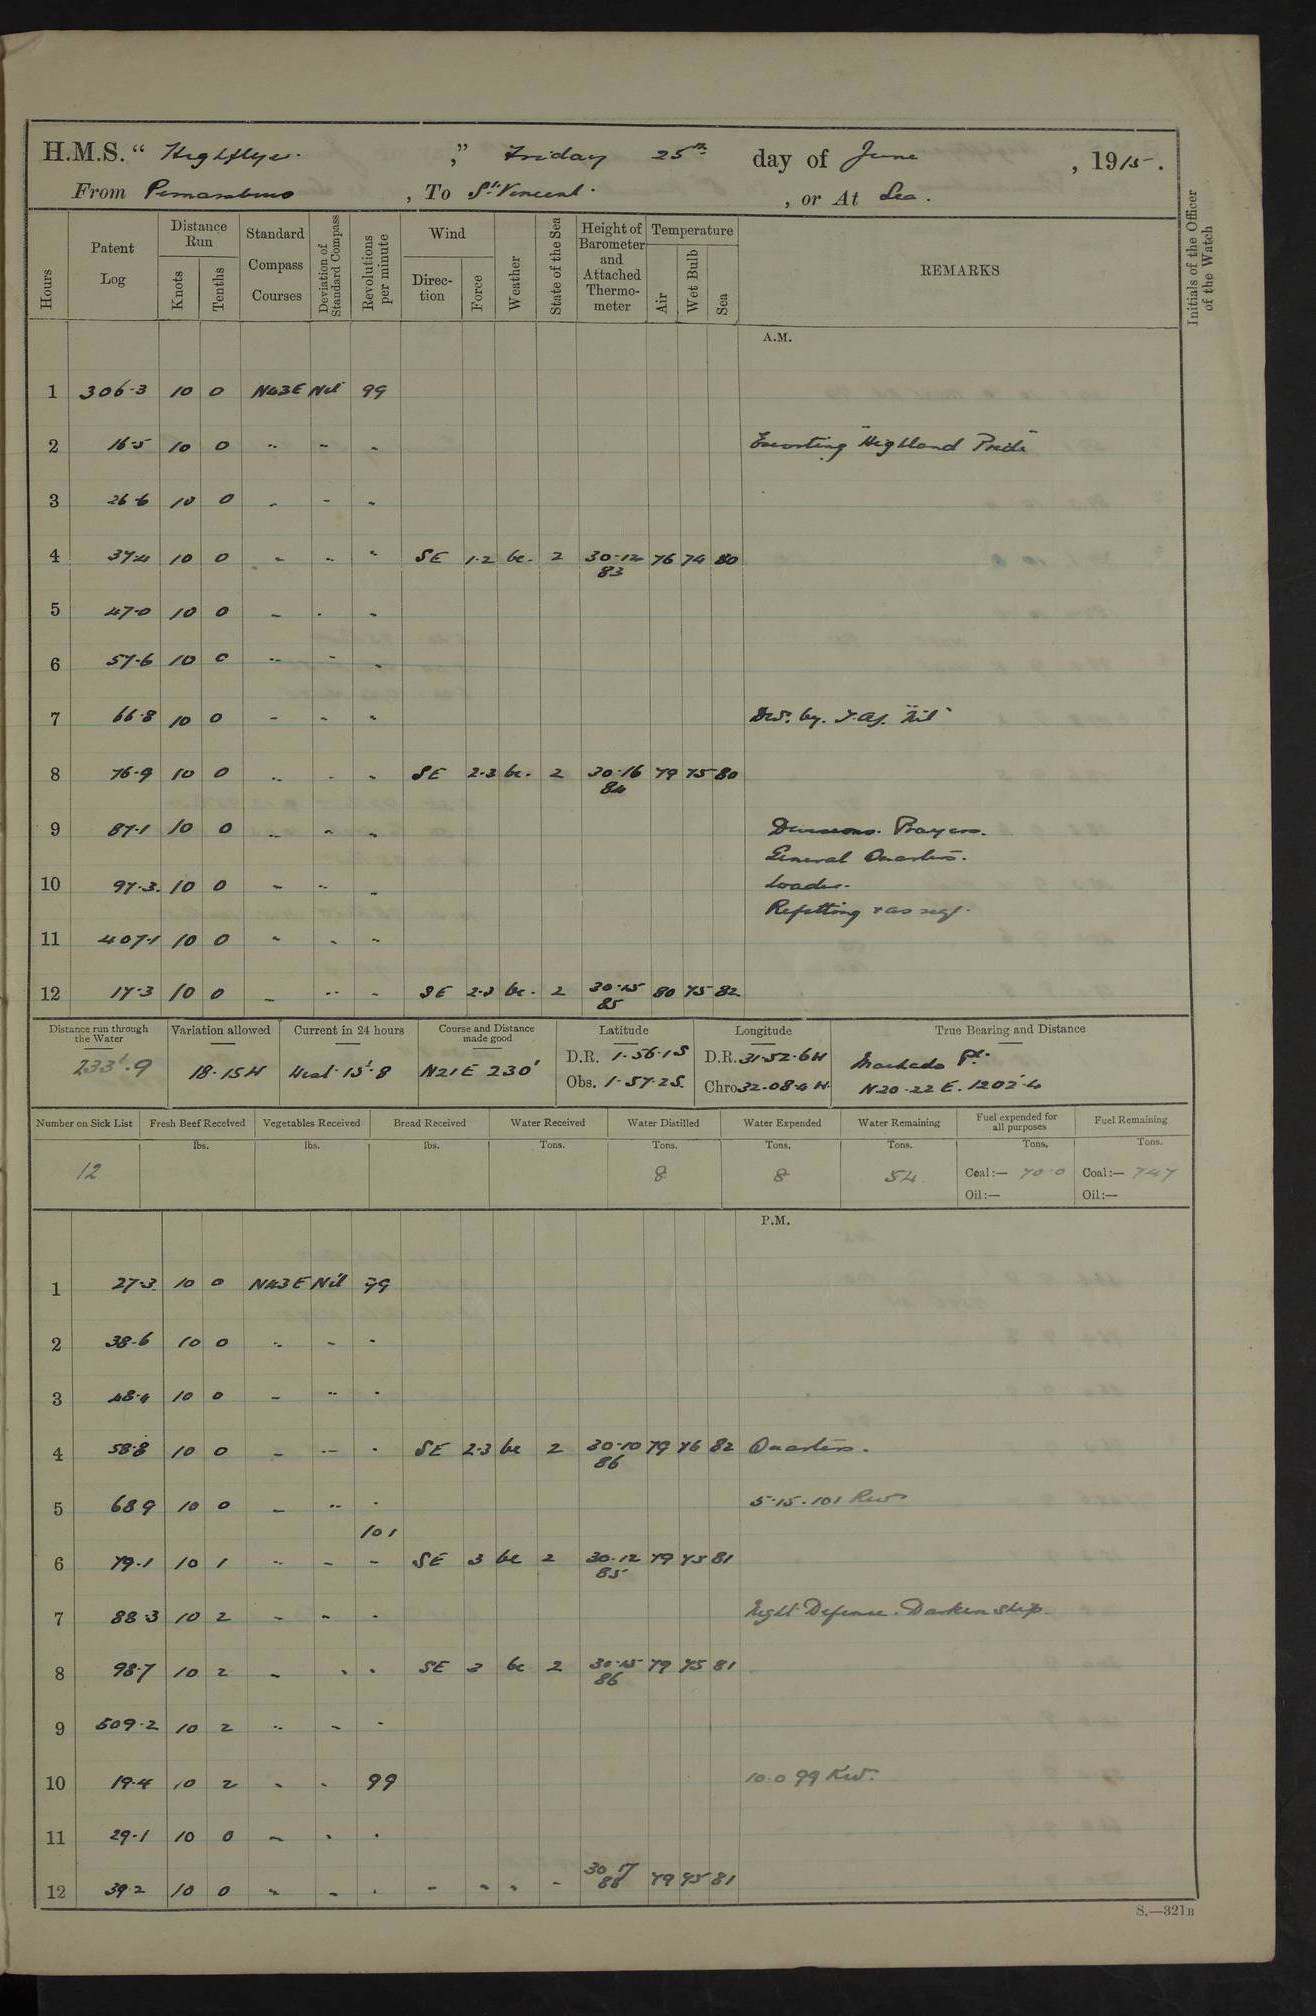 H.M.S. “ Highflyer. ,” Friday 25th day of June , 1915.
From Pernambuco , To St. Vincent. , or At Sea.
Hours Patent Log Distance Run Knots Tenths Standard Compass Courses Deviation of Standard Compass Revolutions per minute Wind Direction Force Weather State of the Sea Height of Barometer and Attached Thermometer Temperature Air Wet Bulb Sea REMARKS Initials of the Officer of the Watch
A.M.
1 306.3 10 0 N43E Nil 99
2 16.5 10 0 " " " Escorting "Highland Pride"
3 26.6 10 0 " " "
4 37.4 10 0 " " " SE 1.2 bc. 2 30.12 76 74 80
83
5 47.0 10 0 " " "
6 57.6 10 0 " " "
7 66.8 10 0 " " "
8 76.9 10 0 " " " SE 2.3 bc. 2 30.16 79 75 80
84
9 87.1 10 0 " " " Divisions. Prayers.
General Quarters.
10 97.3 10 0 " " " Loader.
Refitting & as req.
11 407.1 10 0 " " "
12 17.3 10 0 " " " SE 2.3 bc. 2 30.15 80 75 82
85
Distance run through the Water Variation allowed Current in 24 hours Course and Distance made good Latitude Longitude True Bearing and Distance
233'.9 18.15W West 15'.8 N21E 230' D.R. 1.56.1S D.R. 31.52.6W Machado Pt.
Obs. 1.57.2S. Chro 32.08.4W. N20.22E. 1202'.4
Number on Sick List Fresh Beef Received Vegetables Received Bread Received Water Received Water Distilled Water Expended Water Remaining Fuel expended for all purposes Fuel Remaining
lbs. lbs. lbs. Tons. Tons. Tons. Tons. Tons. Tons.
12 8 8 54 Coal:— 70.0 Coal:— 747
Oil:— Oil:—
P.M.
1 27.3 10 0 N43E Nil 99
2 38.6 10 0 " " "
3 48.4 10 0 " " "
4 58.8 10 0 " " " SE 2.3 bc 2 30.10 79 76 82 Quarters.
86
5 68.9 10 0 " " " 5.15. 101 Revs
101
6 79.1 10 1 " " " SE 3 bc 2 30.12 79 75 81
85
7 88.3 10 2 " " " Night Defence. Darken ship.
8 98.7 10 2 " " " SE 3 bc 2 30.15 79 75 81
86
9 509.2 10 2 " " "
10 19.4 10 2 " " 99 10.0 99 Rev.
11 29.1 10 0 " " "
12 39.2 10 0 " " " " " " " 30 17 79 75 81
86
S.—321B